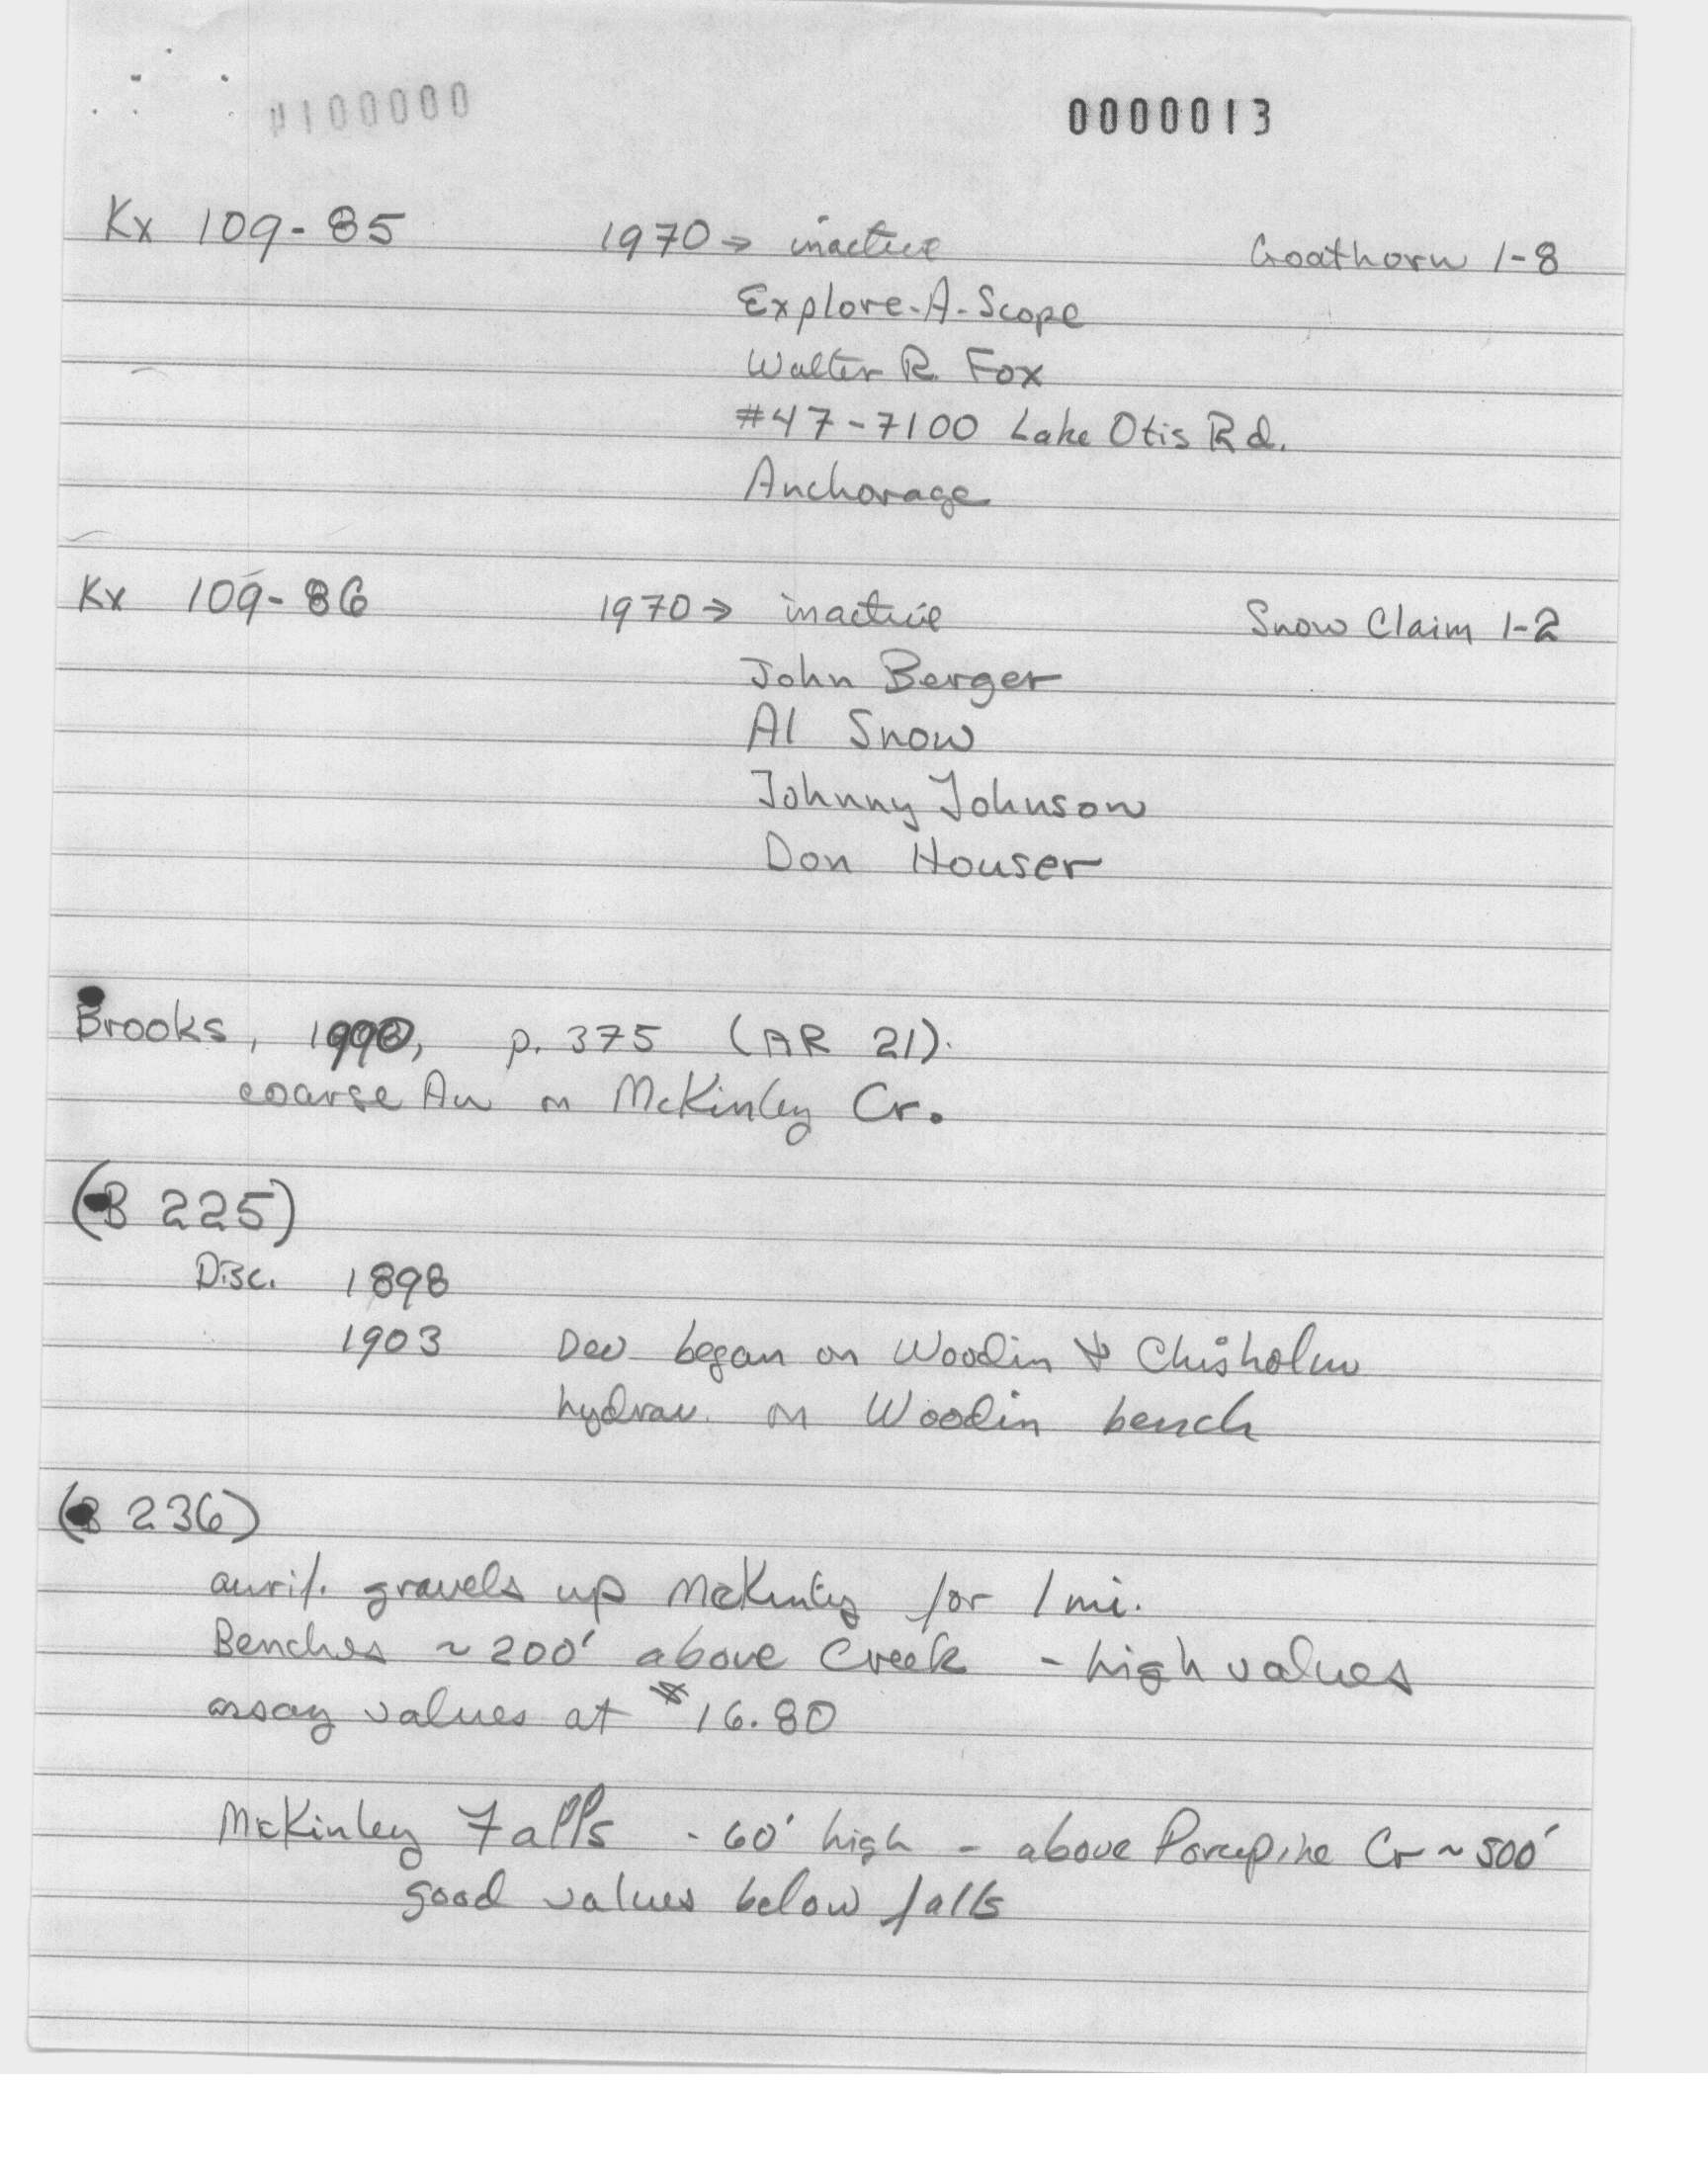 0000013
Kx 109-85 1970→ inactive Goathorn 1-8
Explore-A-Scope
Walter R. Fox
#47-7100 Lake Otis Rd.
Anchorage
Kx 109-86 1970→ inactive Snow Claim 1-2
John Berger
Al Snow
Johnny Johnson
Don Houser
Brooks, p. 375 (AR 21).
coarse Au on McKinley Cr.
(B 225)
Disc. 1898
1903 Dev began on Woodin & Chisholm
hydrau. on Woodin bench
(B 236)
aurif. gravels up McKinley for 1 mi.
Benches ~200' above Creek - high values
assay values at $16.80
McKinley Falls - 60' high - above Porcupine Cr ~ 500'
good values below falls